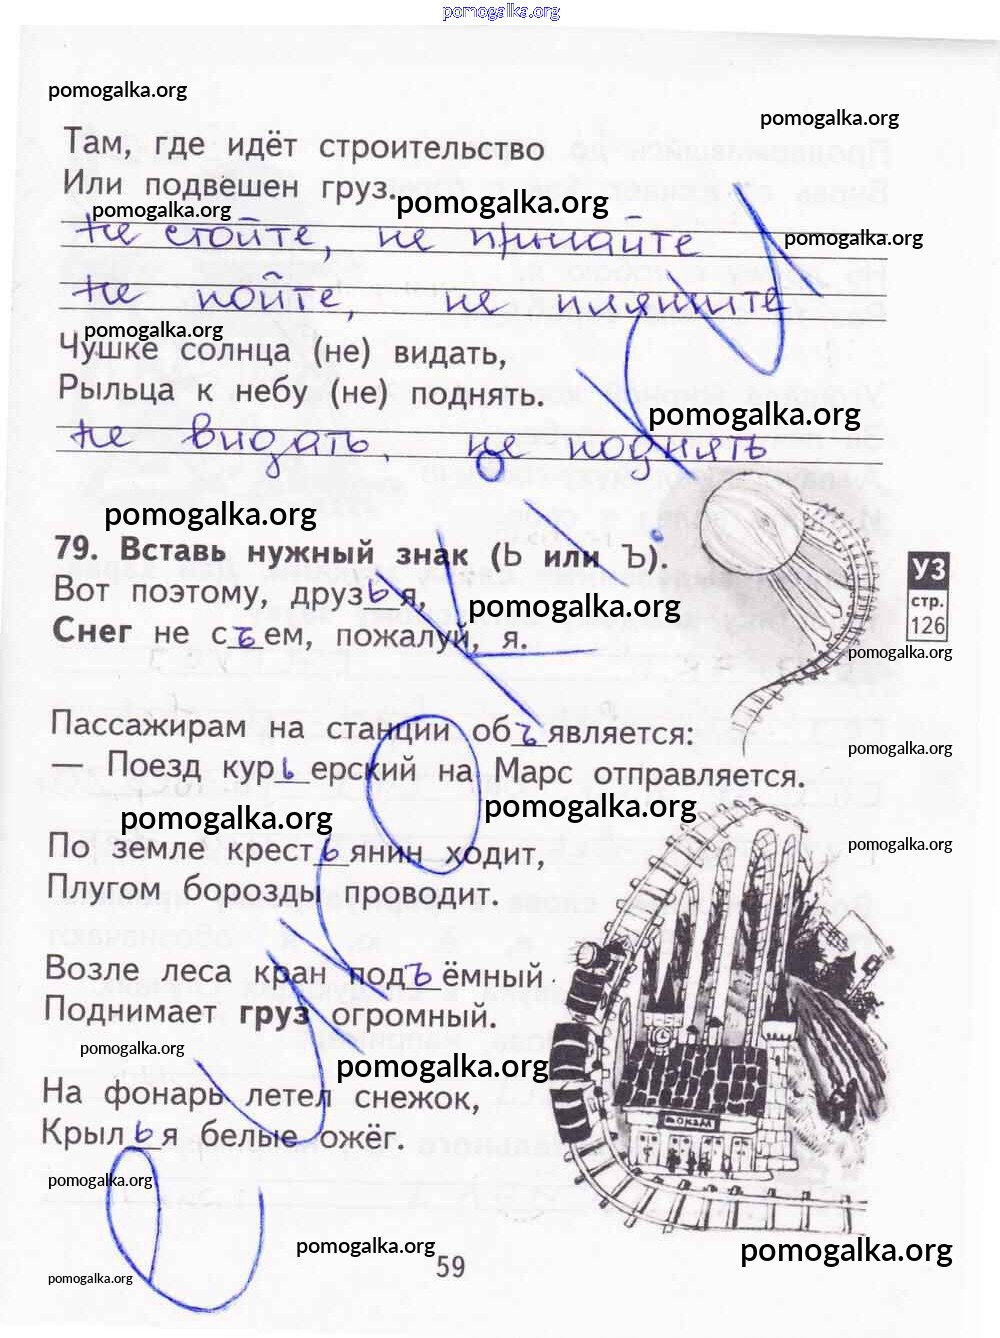 pomogalka.org
pomogalka.org
pomogalka.org
Там, где идёт строительство
Или подвешен груз.
pomogalka.org
pomogalka.org
не стойте, не прыгайте
pomogalka.org
не пойте, не пляшите
pomogalka.org
Чушке солнца (не) видать,
Рыльца к небу (не) поднять.
pomogalka.org
не видать, не поднять
pomogalka.org
79. Вставь нужный знак (Ь или Ъ).
УЗ
стр.
126
Вот поэтому, друзья,
pomogalka.org
Снег не съем, пожалуй, я.
pomogalka.org
Пассажирам на станции объявляется:
pomogalka.org
— Поезд курьерский на Марс отправляется.
pomogalka.org
pomogalka.org
pomogalka.org
По земле крестьянин ходит,
Плугом борозды проводит.
Возле леса кран подъёмный
Поднимает груз огромный.
pomogalka.org
pomogalka.org
На фонарь летел снежок,
Крылья белые ожёг.
pomogalka.org
pomogalka.org
pomogalka.org
59
pomogalka.org